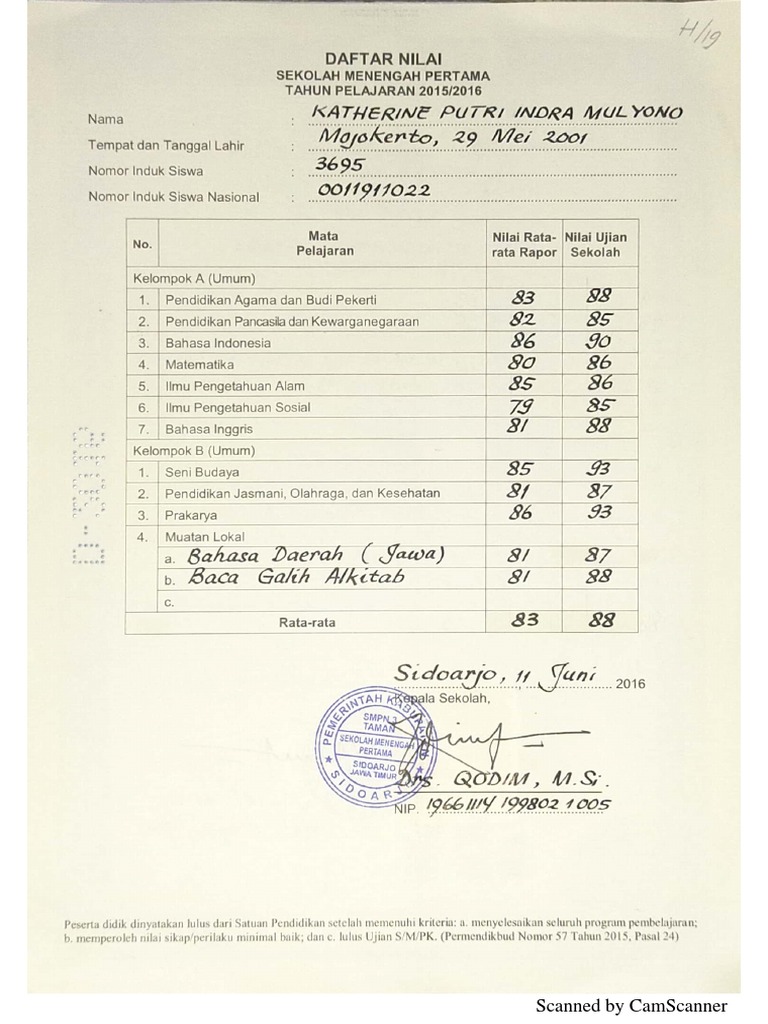 H/19
DAFTAR NILAI
SEKOLAH MENENGAH PERTAMA
TAHUN PELAJARAN 2015/2016
Nama : KATHERINE PUTRI INDRA MULYONO
Tempat dan Tanggal Lahir : Mojokerto, 29 Mei 2001
Nomor Induk Siswa : 3695
Nomor Induk Siswa Nasional : 0011911022
No. Mata Pelajaran Nilai Rata-rata Rapor Nilai Ujian Sekolah
Kelompok A (Umum)
1. Pendidikan Agama dan Budi Pekerti 83 88
2. Pendidikan Pancasila dan Kewarganegaraan 82 85
3. Bahasa Indonesia 86 90
4. Matematika 80 86
5. Ilmu Pengetahuan Alam 85 86
6. Ilmu Pengetahuan Sosial 79 85
7. Bahasa Inggris 81 88
Kelompok B (Umum)
1. Seni Budaya 85 93
2. Pendidikan Jasmani, Olahraga, dan Kesehatan 81 87
3. Prakarya 86 93
4. Muatan Lokal
a. Bahasa Daerah (Jawa) 81 87
b. Baca Galih Alkitab 81 88
c.
Rata-rata 83 88
Sidoarjo, 11 Juni 2016
Kepala Sekolah,
PEMERINTAH KABUPATEN
SMPN
TAMAN
SEKOLAH MENENGAH
PERTAMA
SIDOARJO
JAWA TIMUR
SIDOARJO
Drs. QODIM, M.Si.
NIP. 19661114 199802 1 005
Peserta didik dinyatakan lulus dari Satuan Pendidikan setelah memenuhi kriteria: a. menyelesaikan seluruh program pembelajaran;
b. memperoleh nilai sikap/perilaku minimal baik; dan c. lulus Ujian S/M/PK. (Permendikbud Nomor 57 Tahun 2015, Pasal 24)
Scanned by CamScanner